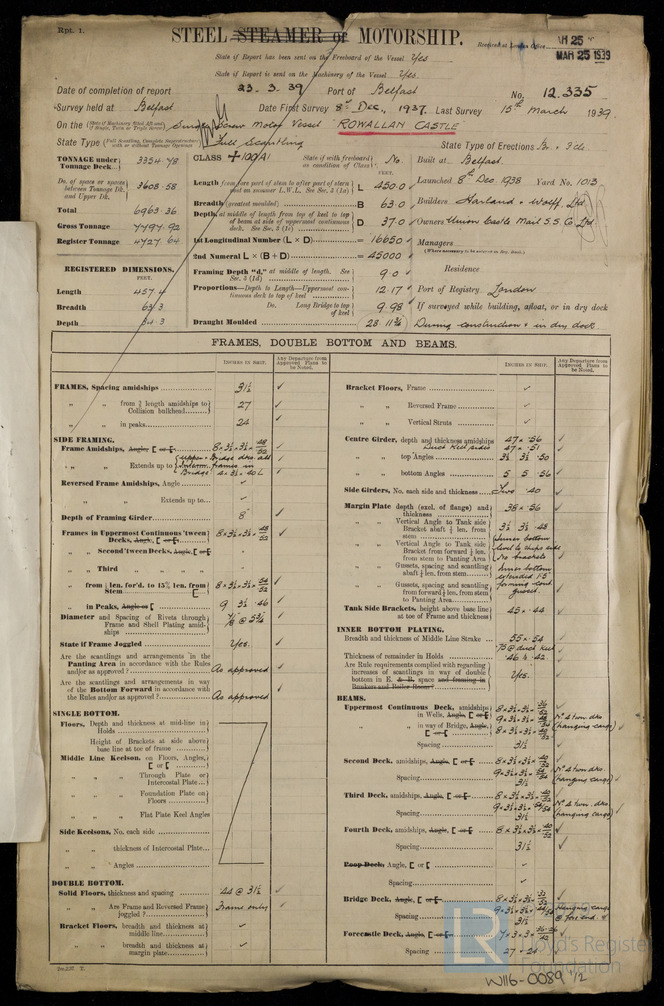 Rpt. 1.
STEEL STEAMER or MOTORSHIP.
Received at London Office
MAR 25 1939
State if Report has been sent on the Freeboard of the Vessel Yes
State if Report is sent on the Machinery of the Vessel Yes
Date of completion of report 23.3.39 Port of Belfast No. 12.335
Survey held at Belfast Date First Survey 8th Dec., 1937. Last Survey 15th March 1939.
On the Single Screw Motor Vessel "ROWALLAN CASTLE"
State Type Full Scantling
State Type of Erections
TONNAGE under Tonnage Deck... 3354.78
Do. of space or spaces between Tonnage Dk. and Upper Dk. 3608.58
Total 6963.36
Gross Tonnage 7797.92
Register Tonnage 4727.64
REGISTERED DIMENSIONS.
FEET.
Length 457.4
Breadth 63.3
Depth 34.3
CLASS +100A1 State if with freeboard as condition of Class No.
FEET.
Length from fore part of stem to after part of stern post on summer L.W.L. See Sec. 3 (1a) L 450.0
Breadth (greatest moulded) B 63.0
Depth, at middle of length from top of keel to top of beam at side of uppermost continuous deck. See Sec. 3 (1c) D 37.0
1st Longitudinal Number (L × D) = 16650
2nd Numeral L × (B + D) = 45000
Framing Depth "d," at middle of length. See Sec. 3 (1d) 9.0
Proportions—Depth to Length—Uppermost continuous deck to top of keel 12.17
Do. Long Bridge to top of keel 9.98
Draught Moulded 28 11¾
Built at Belfast.
Launched 8th Dec. 1938 Yard No. 1013
Builders Harland & Wolff Ltd
Owners Union Castle Mail S.S. Co. Ltd.
Managers
(Where necessary to be entered in Reg. Book.)
Residence
Port of Registry London
If surveyed while building, afloat, or in dry dock
During construction & in dry dock.
FRAMES, DOUBLE BOTTOM AND BEAMS.
INCHES IN SHIP.
Any Departure from Approved Plans to be Noted.
FRAMES, Spacing amidships 31½ ✓
" " from ⅗ length amidships to Collision bulkhead 27 ✓
" " in peaks 24 ✓
SIDE FRAMING.
Frame Amidships, Angle, [ or [ 8 × 3½ × 3½ ×
" " Extends up to
Reversed Frame Amidships, Angle ✓
" " Extends up to ✓
Depth of Framing Girder 8" ✓
Frames in Uppermost Continuous 'tween Decks, Angle, [ or [ 8 × 3½ × 3½ ×
" " Second 'tween Decks, Angle, [ or [
" " Third " "
" " from ⅕ len. for'd. to 15% len. from Stem 8 × 3½ × 3½ ×
" " in Peaks, Angle or [ 9 3½ .46 ✓
Diameter and Spacing of Rivets through Frame and Shell Plating amidships ⅞ @ 5¾ ✓
State if Frame Joggled Yes. ✓
Are the scantlings and arrangements in the Panting Area in accordance with the Rules and/or as approved? As approved ✓
Are the scantlings and arrangements in way of the Bottom Forward in accordance with the Rules and/or as approved? As approved ✓
SINGLE BOTTOM.
Floors, Depth and thickness at mid-line in Holds
Height of Brackets at side above base line at toe of frame
Middle Line Keelson, on Floors, Angles, [ or [
" " Through Plate or Intercostal Plate
" " Foundation Plate on Floors
" " Flat Plate Keel Angles
Side Keelsons, No. each side
" " thickness of Intercostal Plate
" " Angles
DOUBLE BOTTOM.
Solid Floors, thickness and spacing .44 @ 31½ ✓
" " Are Frame and Reversed Frame joggled? Frame only ✓
Bracket Floors, breadth and thickness at middle line ✓
" " breadth and thickness at margin plate ✓
INCHES IN SHIP.
Any Departure from Approved Plans to be Noted.
Bracket Floors, Frame ✓
" " Reversed Frame ✓
" " Vertical Struts ✓
Centre Girder, depth and thickness amidships 47 × .56 ✓
Duct Keel sides 47 × .51
" " top Angles 3½ 3½ .50 ✓
" " bottom Angles 5 5 .56 ✓
Side Girders, No. each side and thickness Two .40 ✓
Margin Plate depth (excl. of flange) and thickness 38 × .56 ✓
" " Vertical Angle to Tank side Bracket abaft ¼ len. from stem 3½ 3½ .48 ✓
" " Vertical Angle to Tank side Bracket from forward ¼ len. from stem to Panting Area Inner bottom level to ships side No brackets
" " Gussets, spacing and scantling abaft ¼ len. from stem Inner bottom extended
" " Gussets, spacing and scantling from forward ¼ len. from stem to Panting Area forming cont. gusset.
Tank Side Brackets, height above base line at toe of Frame and thickness 45 × .44 ✓
INNER BOTTOM PLATING.
Breadth and thickness of Middle Line Strake 55 × .54
.75 @ duct keel ✓
Thickness of remainder in Holds .46 & .42 ✓
Are Rule requirements complied with regarding increases of scantlings in way of double bottom in E. & B. space and framing in Bunkers and Boiler Room? Yes. ✓
BEAMS.
Uppermost Continuous Deck, amidships in Wells, Angle, [ or [ 8 × 3½ × 3½ ×
" " in way of Bridge, Angle, [ or [ 8 × 3½ × 3½ ×
No. 4 twn. dks (hanging cargo) ✓
Spacing 31½ ✓
Second Deck, amidships, Angle, [ or [ 8 × 3½ × 3½ ×
Spacing 31½
No. 4 twn. dks. (hanging cargo) ✓
Third Deck, amidships, Angle, [ or [ 8 × 3½ × 3½ ×
Spacing 31½
No. 4 twn. dks. (hanging cargo) ✓
Fourth Deck, amidships, Angle, [ or [ 8 × 3½ × 3½ ×
Spacing 31½ ✓
Poop Deck, Angle, [ or [ ✓
Spacing ✓
Bridge Deck, Angle, [ or [ 8 × 3½ × 3½ ×
Spacing 31½
Hanging cargo @ fore end. ✓
Forecastle Deck, Angle, [ or [ 7 × 3 × 3 ×
Spacing 27 & 24 ✓
LR
Lloyd's Register
Foundation
W116-0089 1/2